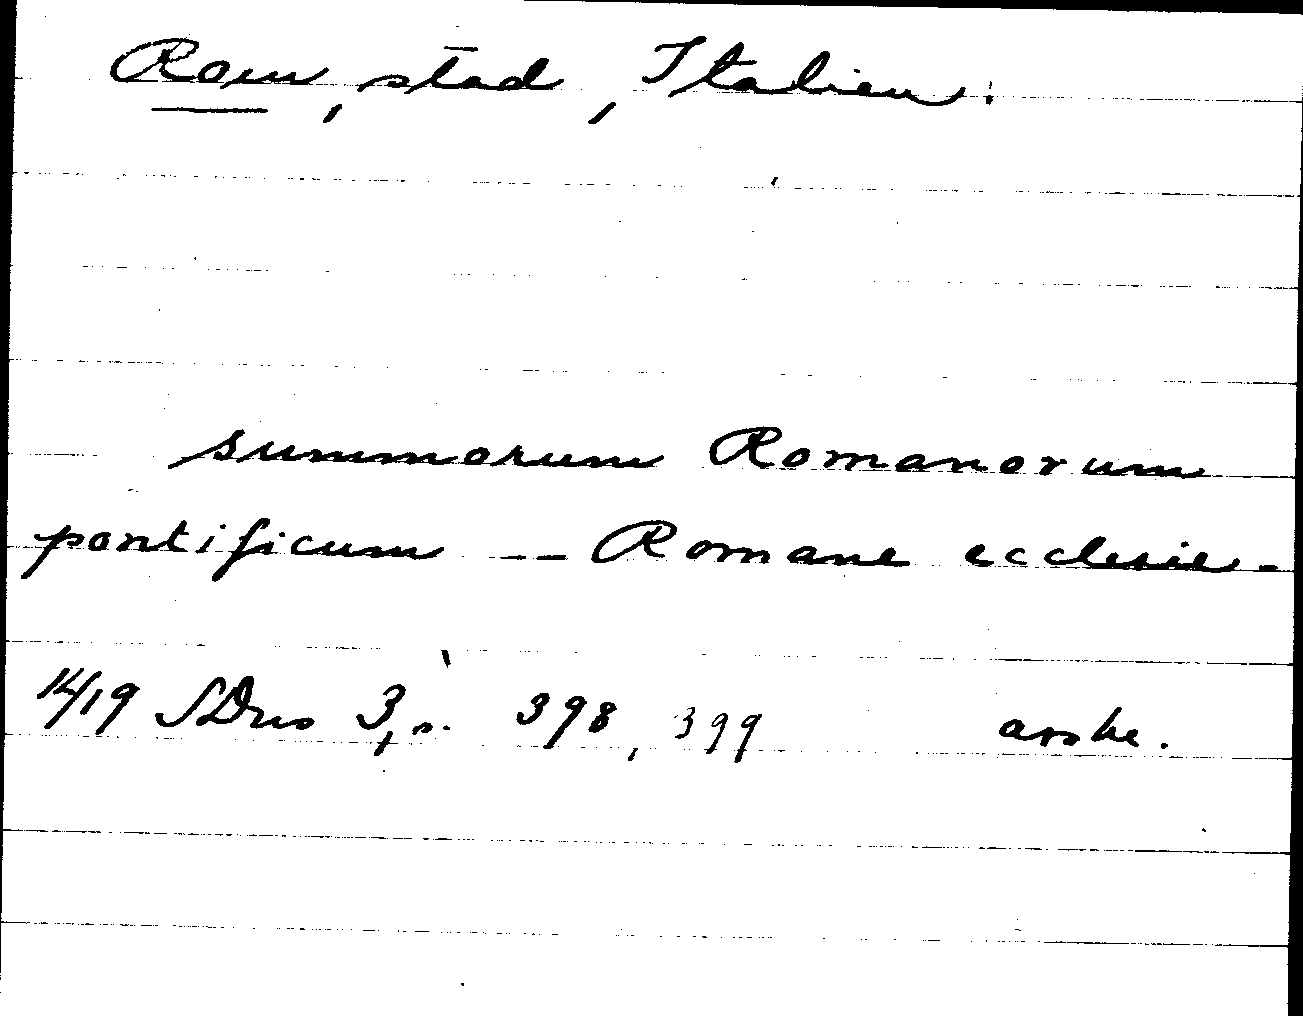 Rom, stad, Italien.
summorum Romanorum
pontificum -- Romane ecclesie -
14/19 SDns 3, s. 398, 399 avskr.